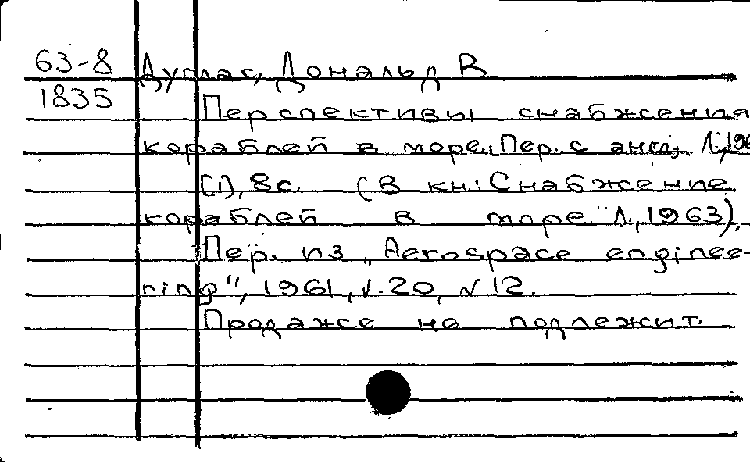 63-8 Дуглас, Дональд В
1835
Перспективы снабжения
кораблей в море. Пер. с англ. Л.,
(1), 8с. (В кн: Снабжение
кораблей в море" Л., 1963).
Пер. из „Aerospace enginee-
ring", 1961, v. 20, N 12.
Продаже не подлежит.